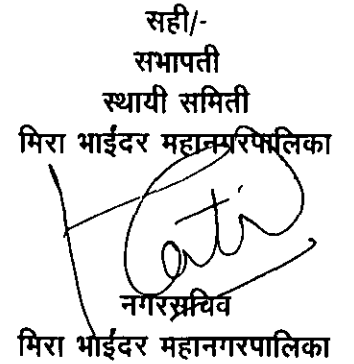 सही/-
सभापती
स्थायी समिती
मिरा भाईंदर महानगरपालिका
नगरसचिव
मिरा भाईंदर महानगरपालिका